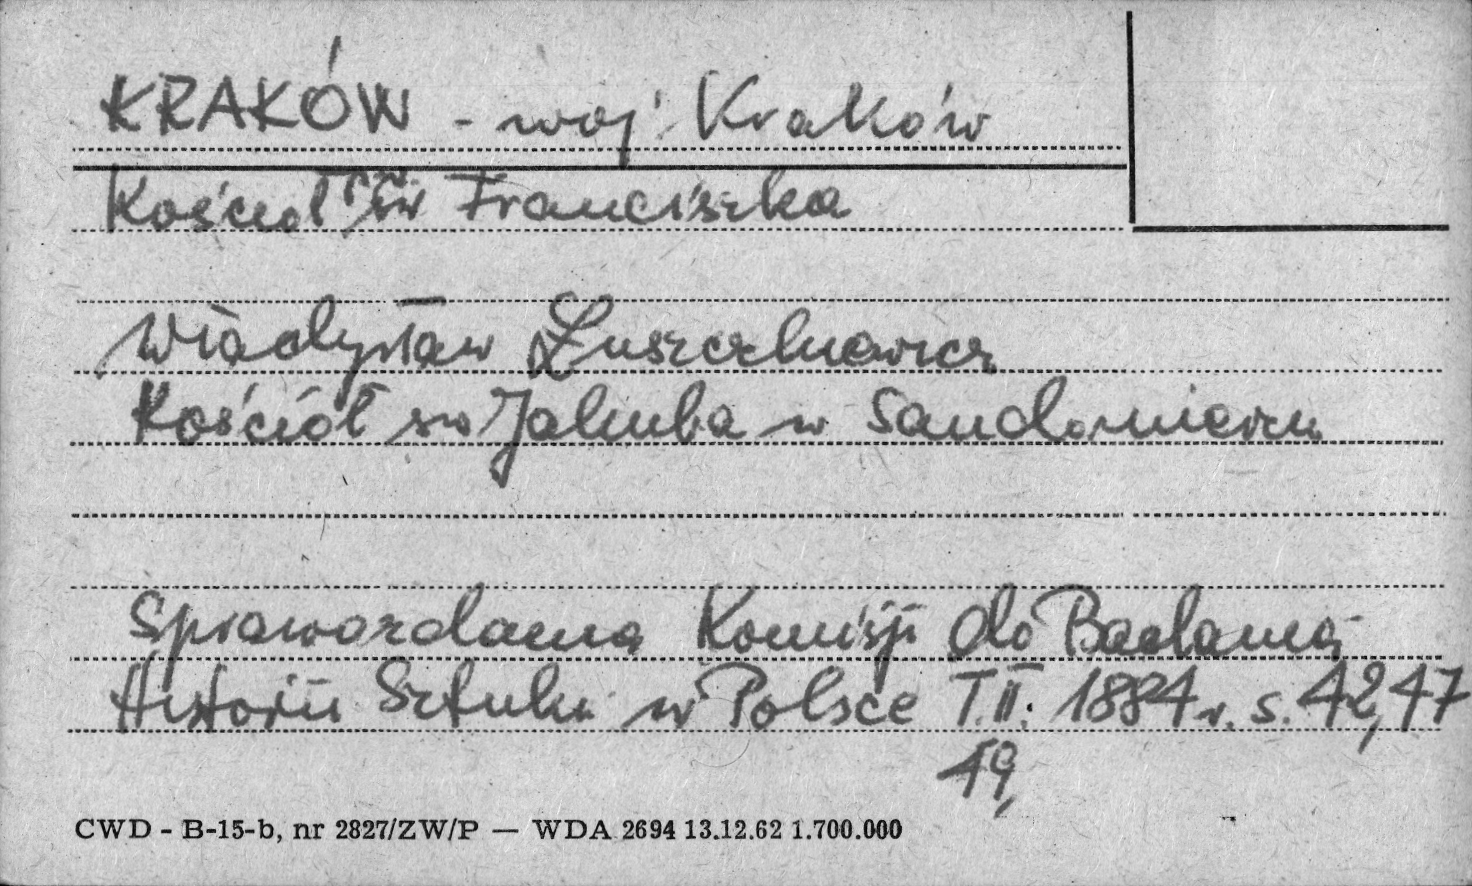 KRAKÓW - woj. Kraków
Kościół św Franciszka
Władysław Łuszczkiewicz
Kościół św Jakuba w Sandomierzu
Sprawozdania Komisji do Badania
Historii Sztuki w Polsce T.II. 1884 r. s. 42, 47
49,
CWD - B-15-b, nr 2827/ZW/P — WDA 2694 13.12.62 1.700.000